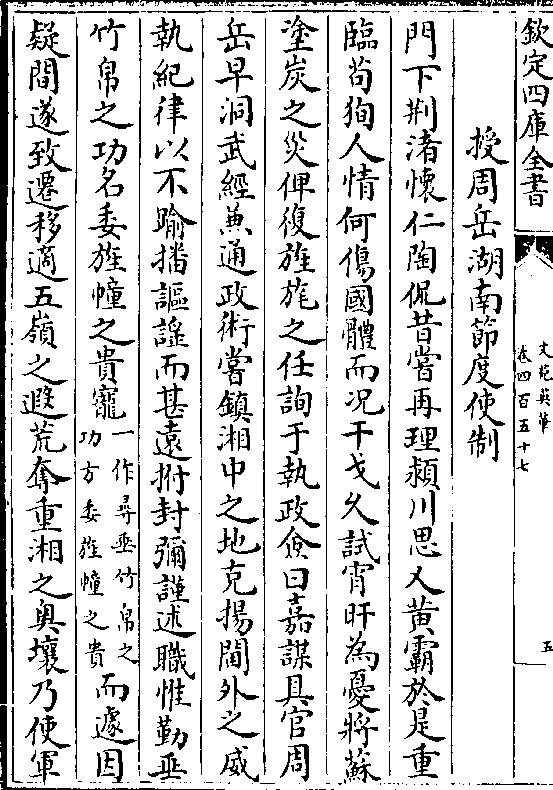 欽定四庫全書
文苑英華
卷四百五十七
五
授周岳湖南節度使制
門下荆渚懷仁陶侃昔嘗再理潁川思乂黄霸於是重
臨苟狥人情何傷國體而况干戈久試宵旰為憂將蘇
塗炭之災俾復旌旄之任詢于執政僉曰嘉謀具官周
岳早洞武經兼通政術嘗鎮湘中之地克揚閫外之威
執紀律以不踰播謳謡而甚遠拊封彌謹述職惟勤垂
竹帛之功名委旌幢之貴寵一作尋垂竹帛之功方委旌幢之貴而遽因
疑間遂致遷移適五嶺之遐荒奪重湘之奥壤乃使軍